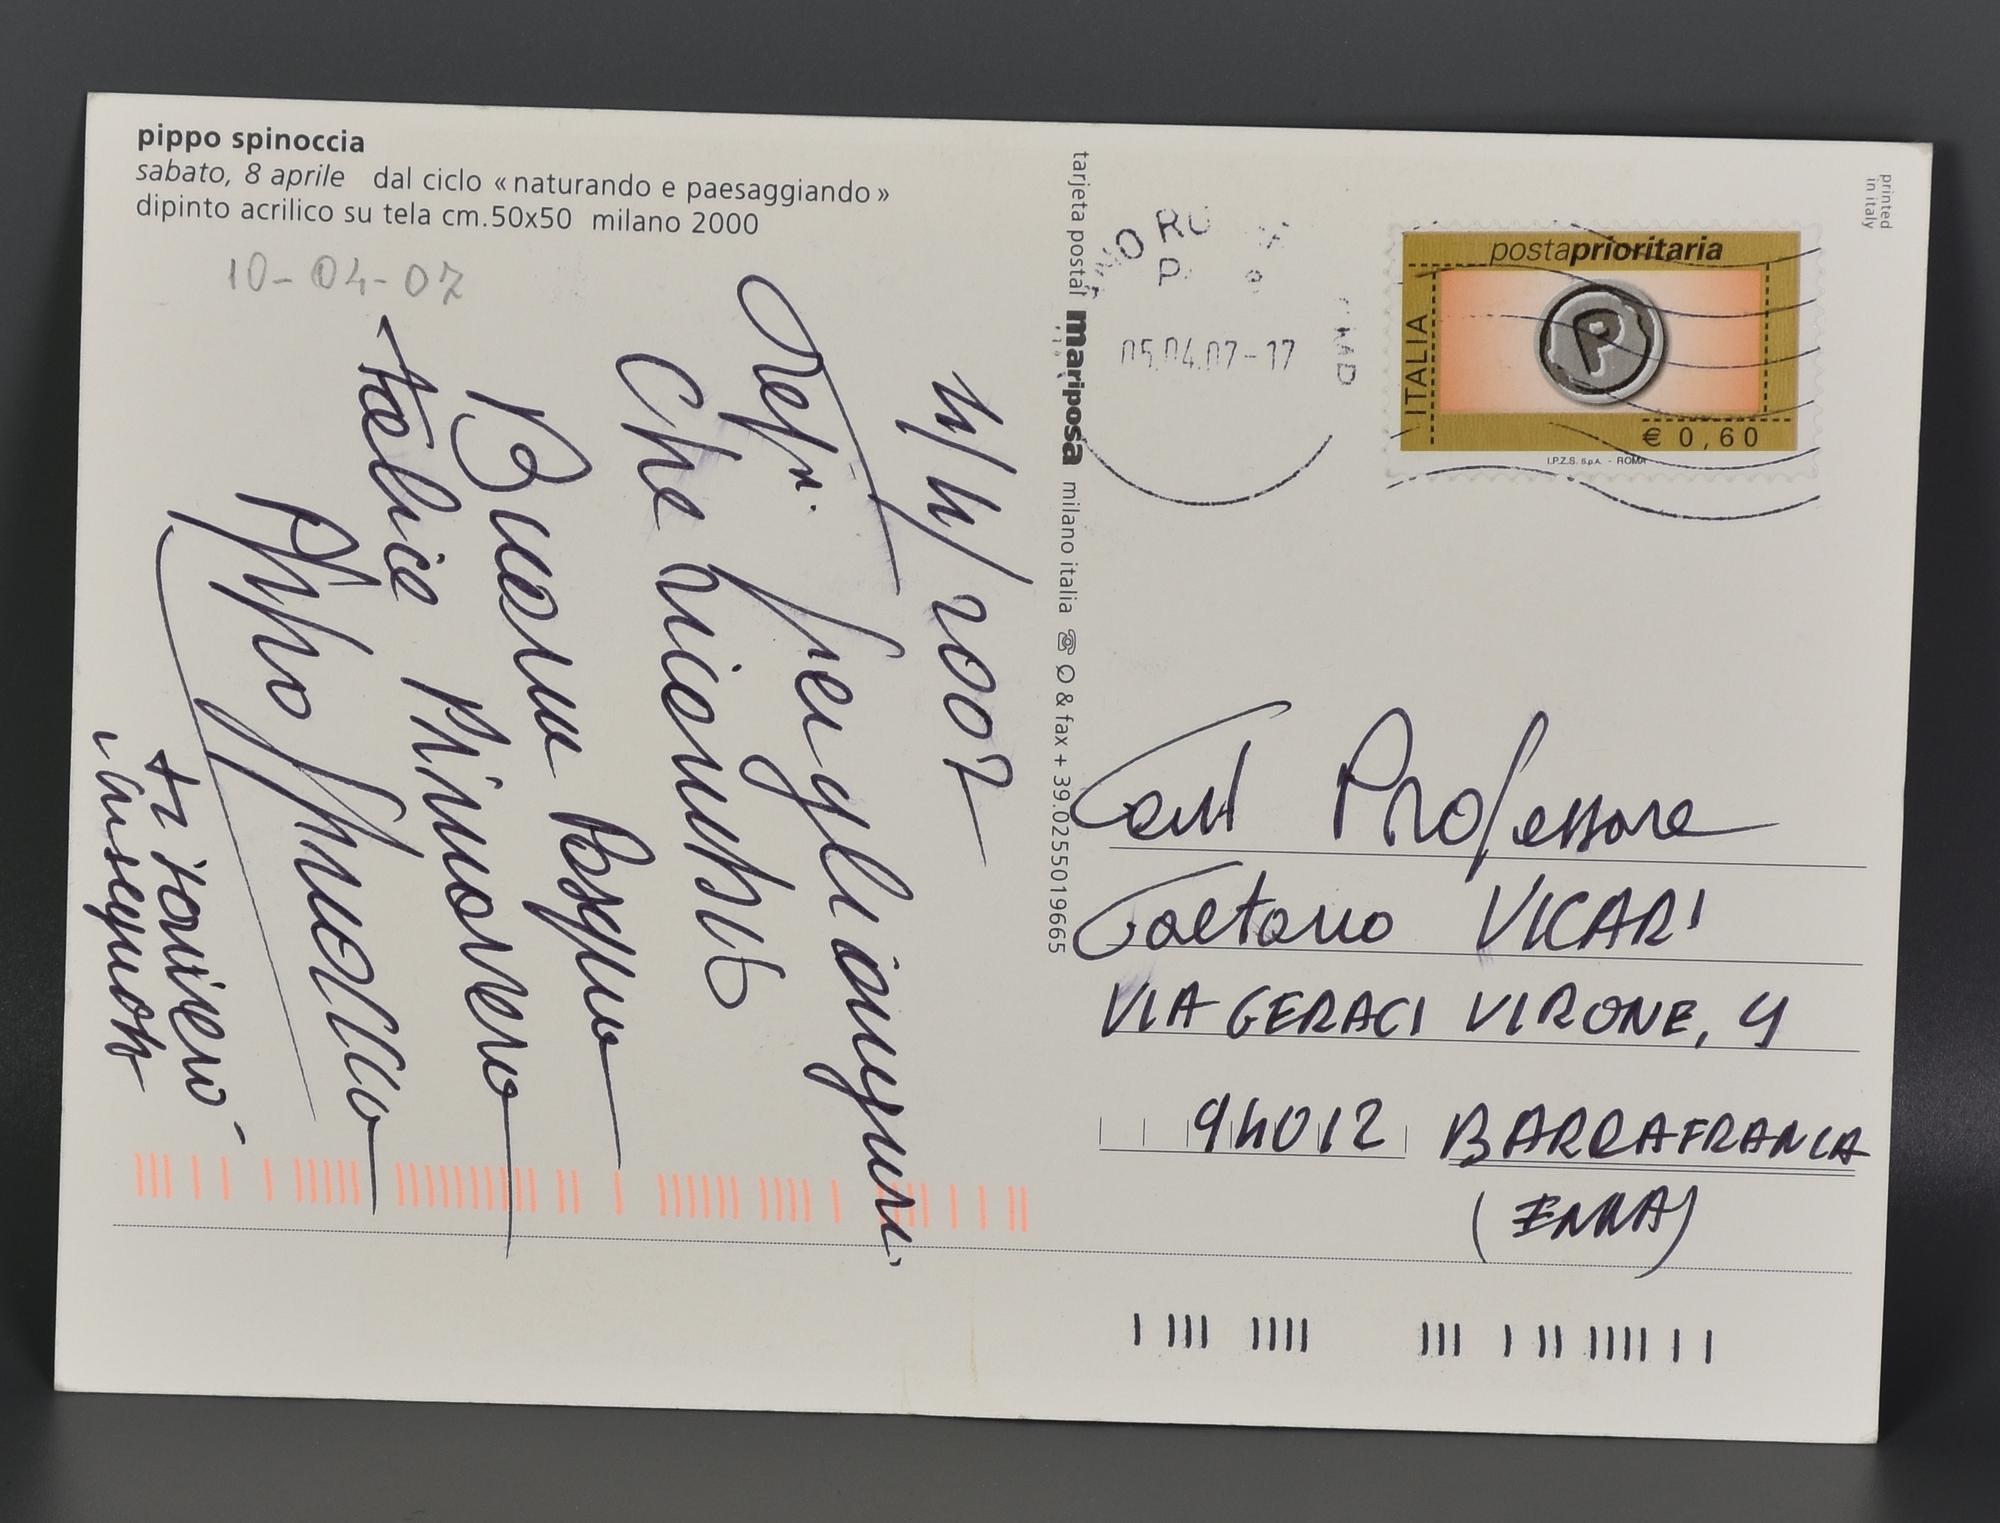 pippo spinoccia
sabato, 8 aprile dal ciclo «naturando e paesaggiando»
dipinto acrilico su tela cm.50x50 milano 2000
10-04-07
4/4/2007
per gli auguri
che ricambio
Buona Pasqua
felice Primavera
Pippo Spinoccia
tarjeta postal mariposa milano italia & fax + 39.0255019665
printed
in italy
05.04.07-17
postaprioritaria
ITALIA
P
€ 0,60
I.P.Z.S. S.p.A. - ROMA
Professore
Gaetano VICARI
VIA GERACI VIRONE, 9
94012 BARRAFRANCA
(ENNA)